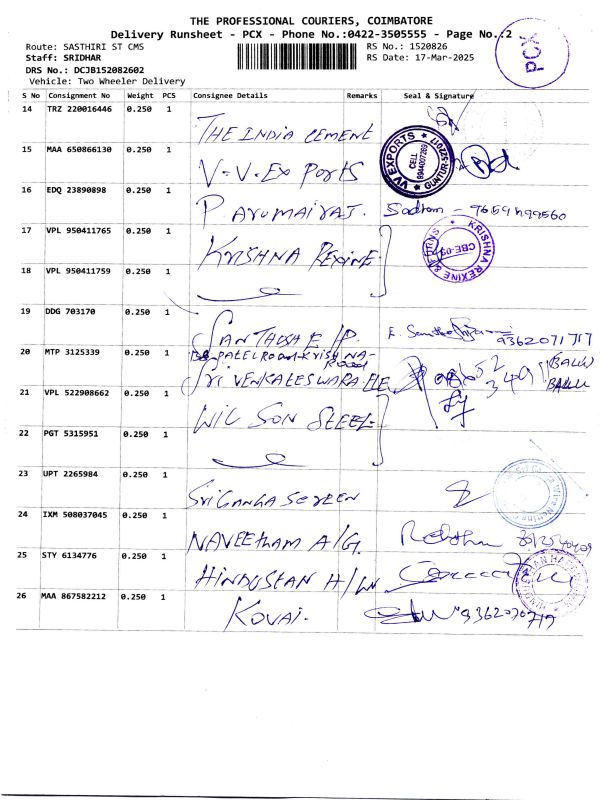 THE PROFESSIONAL COURIERS, COIMBATORE
Delivery Runsheet - PCX - Phone No.:0422-3505555 - Page No.:2
PCX
Route: SASTHIRI ST CMS
RS No.: 1520826
Staff: SRIDHAR
RS Date: 17-Mar-2025
DRS No.: DCJB152082602
Vehicle: Two Wheeler Delivery
S No Consignment No Weight PCS Consignee Details Remarks Seal & Signature
14 TRZ 220016446 0.250 1
THE INDIA CEMENT
15 MAA 650866130 0.250 1
V.V.Ex Ports
VV EXPORTS
CELL
16 EDQ 23890898 0.250 1
P. ARUMAIRAJ.
17 VPL 950411765 0.250 1
KRISHNA REXINE
KRISHNA REXINE &
18 VPL 950411759 0.250 1
19 DDG 703170 0.250 1
SANTHOSH E/P
9362071717
20 MTP 3125339 0.250 1
PATEL Road
SRI VENKATESWARA ELE
(BALU)
21 VPL 522908662 0.250 1
WILSON STEEL
22 PGT 5315951 0.250 1
23 UPT 2265984 0.250 1
SRI GANGA SCREEN
24 IXM 508037045 0.250 1
NAVEETHAM A/G.
25 STY 6134776 0.250 1
HINDUSTAN H/W
26 MAA 867582212 0.250 1
KOVAI.